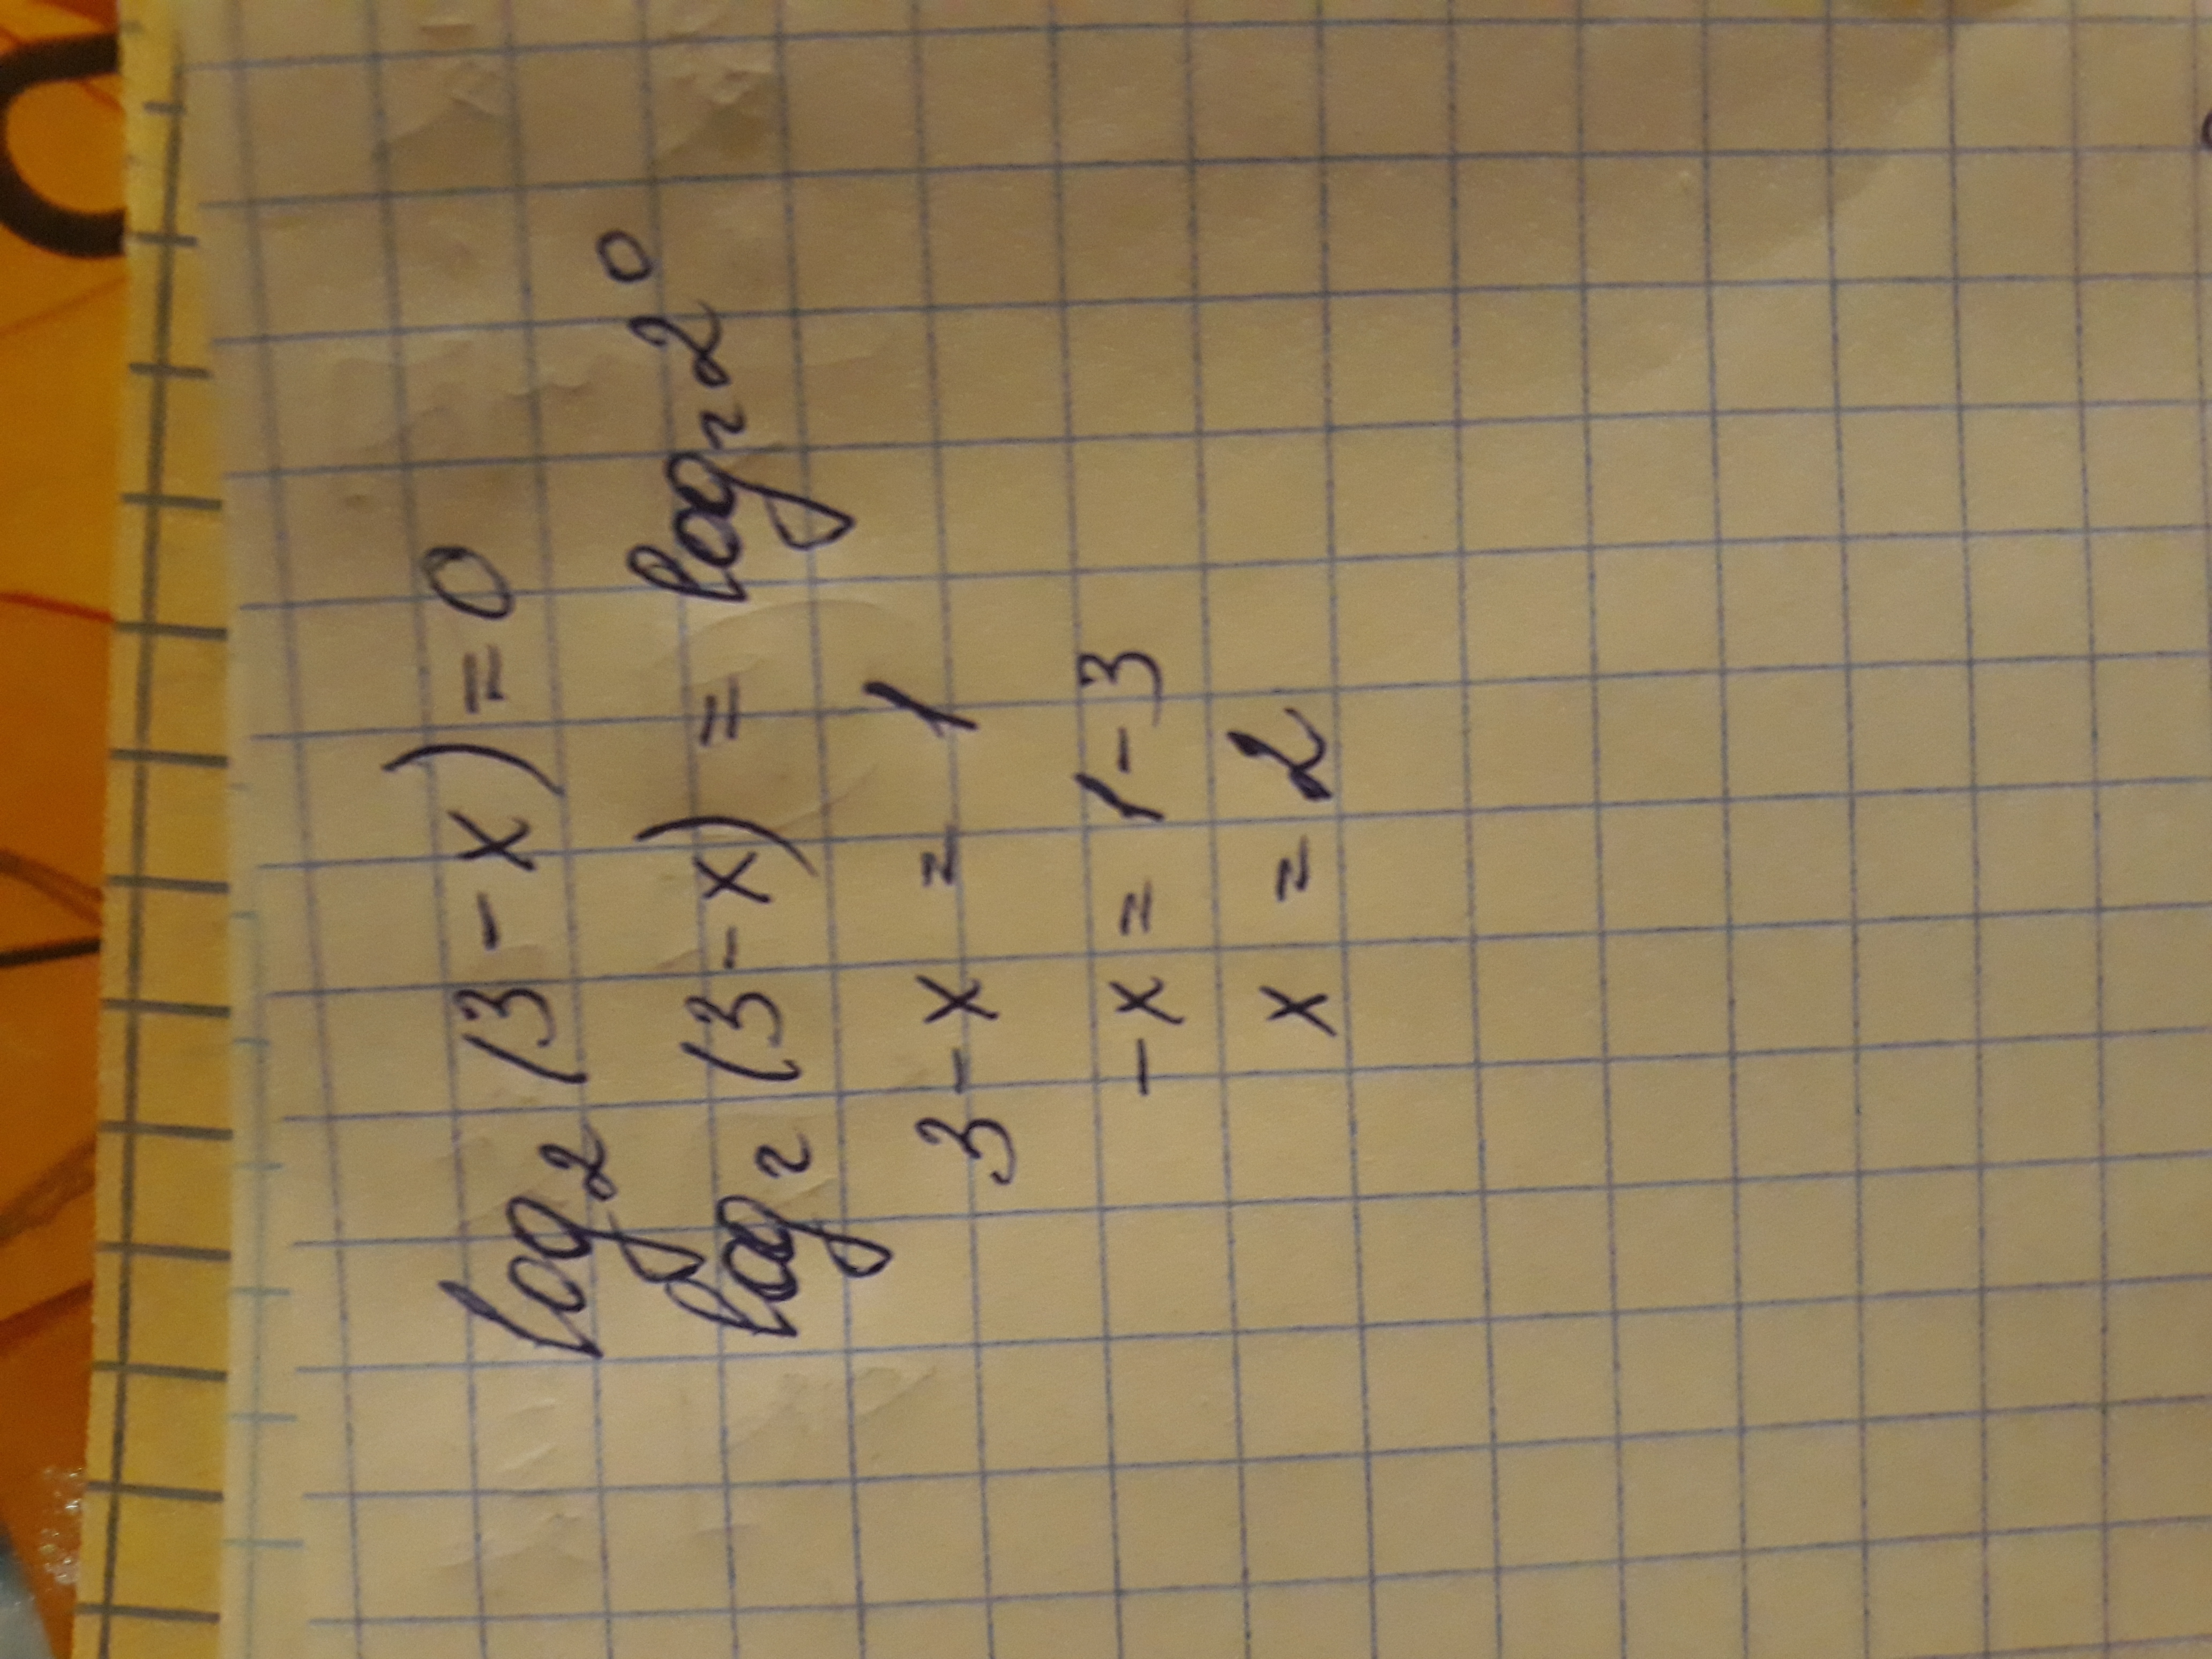 log₂(3-x)=0
log₂(3-x) = log₂2⁰
3-x = 1
-x = 1-3
x = 2